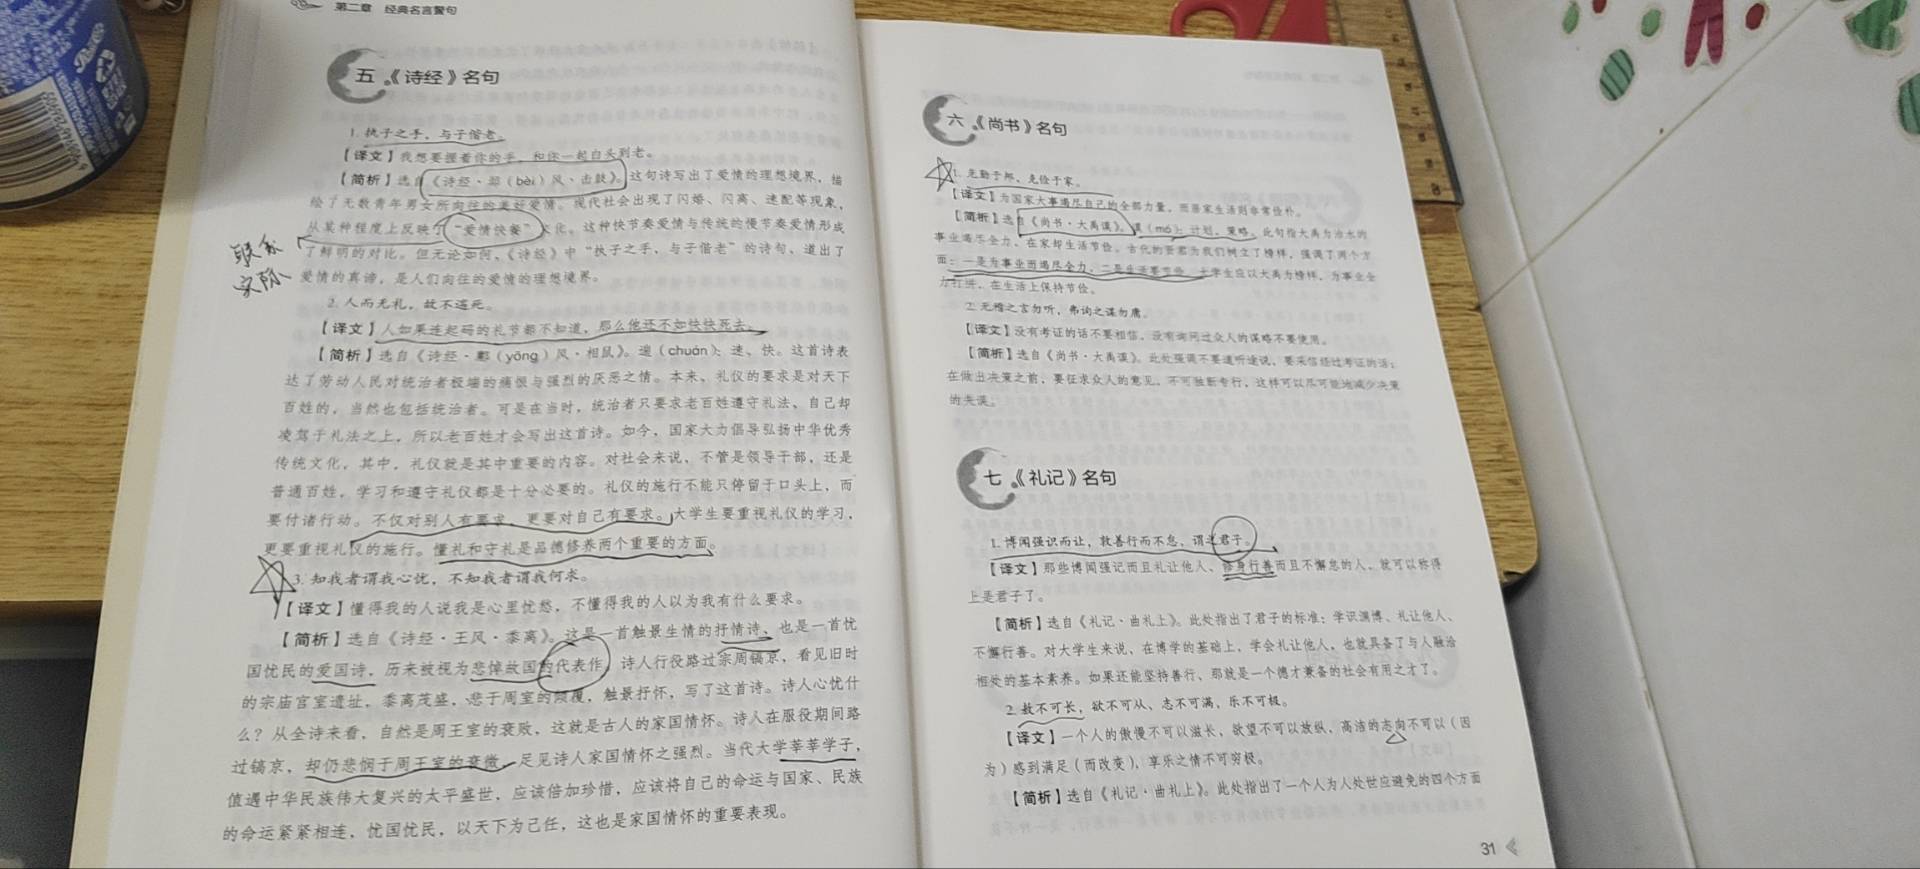 第二章 经典名言警句
五、《诗经》名句
1. 执子之手，与子偕老。
【译文】我想要握着你的手，和你一起白头到老。
【简析】选自《诗经·邶（bèi）风·击鼓》。这句诗写出了爱情的理想境界，描
绘了无数青年男女所向往的美好爱情。现代社会出现了闪婚、闪离、速配等现象，
从某种程度上反映了“爱情快餐”文化。这种快节奏爱情与传统的慢节奏爱情形成
了鲜明的对比。但无论如何，《诗经》中“执子之手，与子偕老”的诗句，道出了
爱情的真谛，是人们向往的爱情的理想境界。
联系
实际
2. 人而无礼，胡不遄死。
【译文】人如果连起码的礼节都不知道，那么他还不如快快死去。
【简析】选自《诗经·鄘（yōng）风·相鼠》。遄（chuán）：速、快。这首诗表
达了劳动人民对统治者极端的痛恨与强烈的厌恶之情。本来，礼仪的要求是对天下
百姓的，当然也包括统治者。可是在当时，统治者只要求老百姓遵守礼法，自己却
凌驾于礼法之上，所以老百姓才会写出这首诗。如今，国家大力倡导弘扬中华优秀
传统文化，其中，礼仪就是其中重要的内容。对社会来说，不管是领导干部，还是
普通百姓，学习和遵守礼仪都是十分必要的。礼仪的施行不能只停留于口头上，而
要付诸行动。不仅对别人有要求，更要对自己有要求。大学生要重视礼仪的学习，
更要重视礼仪的施行。懂礼和守礼是品德修养两个重要的方面。
3. 知我者谓我心忧，不知我者谓我何求。
【译文】懂得我的人说我是心里忧愁，不懂得我的人以为我有什么要求。
【简析】选自《诗经·王风·黍离》。这是一首触景生情的抒情诗，也是一首忧
国忧民的爱国诗，历来被视为悲悼故国的代表作。诗人行役路过宗周镐京，看见旧时
的宗庙宫室遗址，黍离茂盛，悲于周室的倾覆，触景抒怀，写了这首诗。诗人心忧什
么？从全诗来看，自然是周王室的衰败，这就是古人的家国情怀。诗人在服役期间路
过镐京，却仍悲悯于周王室的衰微，足见诗人家国情怀之强烈。当代大学莘莘学子，
值遇中华民族伟大复兴的太平盛世，应该倍加珍惜，应该将自己的命运与国家、民族
的命运紧紧相连，忧国忧民，以天下为己任，这也是家国情怀的重要表现。
六、《尚书》名句
1. 克勤于邦，克俭于家。
【译文】为国家大事竭尽自己的全部力量，而居家生活则非常俭朴。
【简析】选自《尚书·大禹谟》。谟（mó）：计划、策略。此句指大禹为治水的
事业竭尽全力，在家却生活节俭。古代的圣君为我们树立了榜样，强调了两个方
面：一是为事业而竭尽全力，二是生活要节俭。大学生应以大禹为榜样，为事业全
力打拼，在生活上保持节俭。
2. 无稽之言勿听，弗询之谋勿庸。
【译文】没有考证的话不要相信，没有询问过众人的谋略不要使用。
【简析】选自《尚书·大禹谟》。此处强调不要道听途说，要采信经过考证的话；
在做出决策之前，要征求众人的意见，不可独断专行，这样可以尽可能地减少决策
的失误。
七、《礼记》名句
1. 博闻强识而让，敦善行而不怠，谓之君子。
【译文】那些博闻强记而且礼让他人、修身行善而且不懈怠的人，就可以称得
上是君子了。
【简析】选自《礼记·曲礼上》。此处指出了君子的标准：学识渊博、礼让他人、
不懈行善。对大学生来说，在博学的基础上，学会礼让他人，也就具备了与人融洽
相处的基本素养。如果还能坚持善行，那就是一个德才兼备的社会有用之才了。
2. 敖不可长，欲不可从，志不可满，乐不可极。
【译文】一个人的傲慢不可以滋长，欲望不可以放纵，高洁的志向不可以（因
为）感到满足（而改变），享乐之情不可穷极。
【简析】选自《礼记·曲礼上》。此处指出了一个人为人处世应避免的四个方面
31